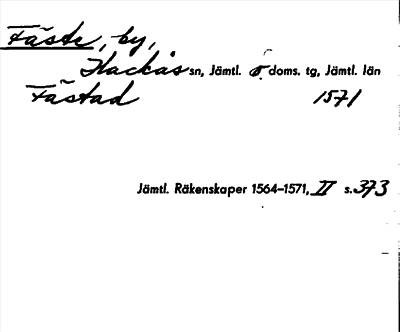 Fäste, by,
Hackås sn, Jämtl. ö. doms. tg, Jämtl. län
Fästad 1571
Jämtl. Räkenskaper 1564-1571, II s. 373